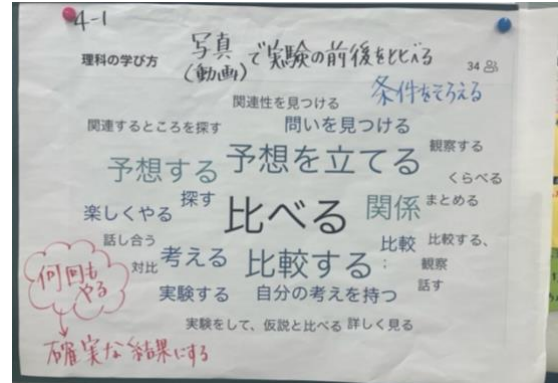 4-1
理科の学び方
写真で実験の前後をくらべる
(動画)
34
条件をそろえる
関連性を見つける
関連するところを探す
問いを見つける
観察する
予想する
予想を立てる
くらべる
楽しくやる
探す
比べる
関係
まとめる
話し合う
対比
考える
比較する
:
比較
比較する、
観察
話す
実験する
自分の考えを持つ
実験をして、仮説と比べる
詳しく見る
何回も
やる
確実な結果にする